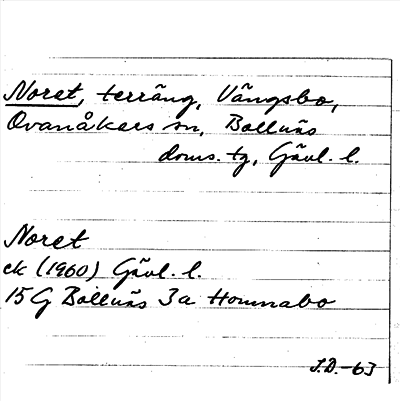 Noret, terräng, Vängsbo,
Ovanåkers sn, Bollnäs
doms. tg, Gävl. l.
Noret
ek (1960) Gävl. l.
15 G Bollnäs 3a Homnabo
J.D.-63